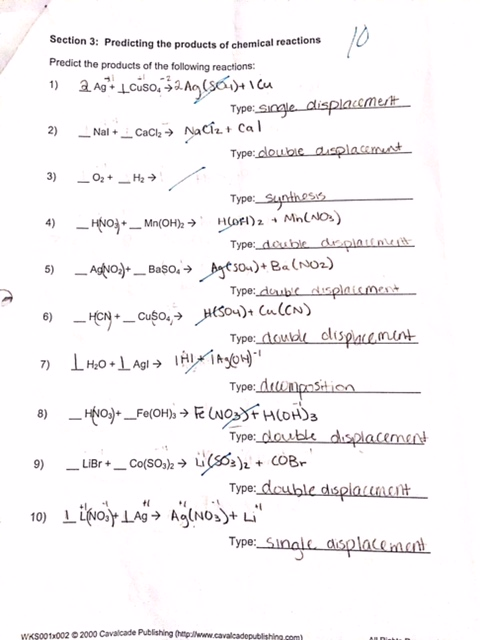 Section 3: Predicting the products of chemical reactions
10
Predict the products of the following reactions:
1) 2 Ag + 1 CuSO₄ → 2 Ag(SO₄) + 1 Cu
Type: single displacement
2) __ NaI + __ CaCl₂ → NaCl₂ + CaI
Type: double displacement
3) __ O₂ + __ H₂ →
Type: synthesis
4) __ H(NO₃) + __ Mn(OH)₂ → H(OH)₂ + Mn(NO₃)
Type: double displacement
5) __ Ag(NO₂) + __ BaSO₄ → Ag(SO₄) + Ba(NO₂)
Type: double displacement
6) __ H(CN) + __ CuSO₄ → H(SO₄) + Cu(CN)
Type: double displacement
7) 1 H₂O + 1 AgI → 1 HI + 1 Ag(OH)⁻¹
Type: decomposition
8) __ H(NO₃) + __ Fe(OH)₃ → Fe(NO₃) + H(OH)₃
Type: double displacement
9) __ LiBr + __ Co(SO₃)₂ → Li(SO₃)₂ + COBr
Type: double displacement
10) 1 Li(NO₃) + 1 Ag → Ag(NO₃) + Li
Type: single displacement
WKS001x002 © 2000 Cavalcade Publishing (http://www.cavalcadepublishing.com)